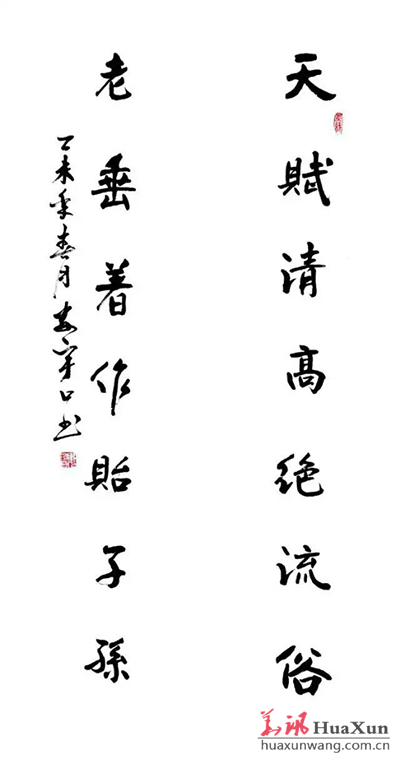 天賦清高絶流俗
老垂著作貽子孫
丁未年春月
书
华讯HuaXun
huaxunwang.com.cn